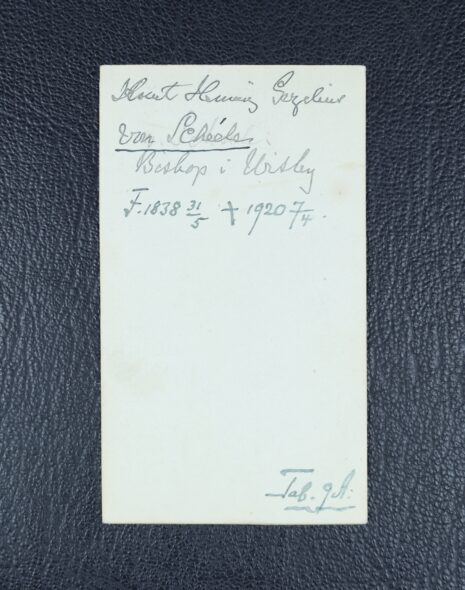 Knut Henning Gezelius
von Schéele
Biskop i Wisby
F. 1838 31/5 † 1920 7/4.
Tab. 9 A: